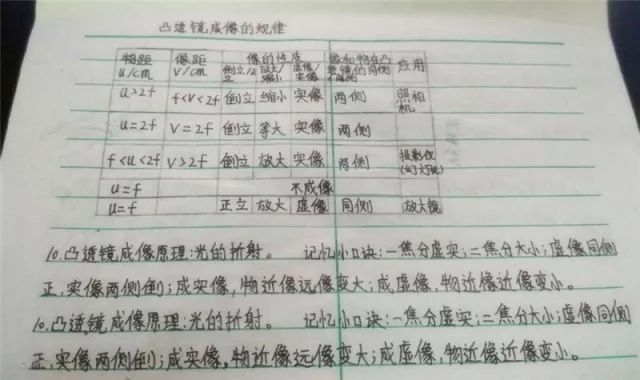 凸透镜成像的规律
物距 u/cm 像距 v/cm 像的性质 倒立/正立 放大/缩小 虚像/实像 像和物在凸透镜的同侧 应用
u>2f f<v<2f 倒立 缩小 实像 两侧 照相机
u=2f v=2f 倒立 等大 实像 两侧
f<u<2f v>2f 倒立 放大 实像 两侧 投影仪(幻灯机)
u=f 不成像
u=f 正立 放大 虚像 同侧 放大镜
10.凸透镜成像原理:光的折射。 记忆小口诀:一焦分虚实;二焦分大小;虚像同侧
正,实像两侧倒;成实像,物近像远像变大;成虚像,物近像近像变小。
10.凸透镜成像原理:光的折射。 记忆小口诀:一焦分虚实;二焦分大小;虚像同侧
正,实像两侧倒;成实像,物近像远像变大;成虚像,物近像近像变小。